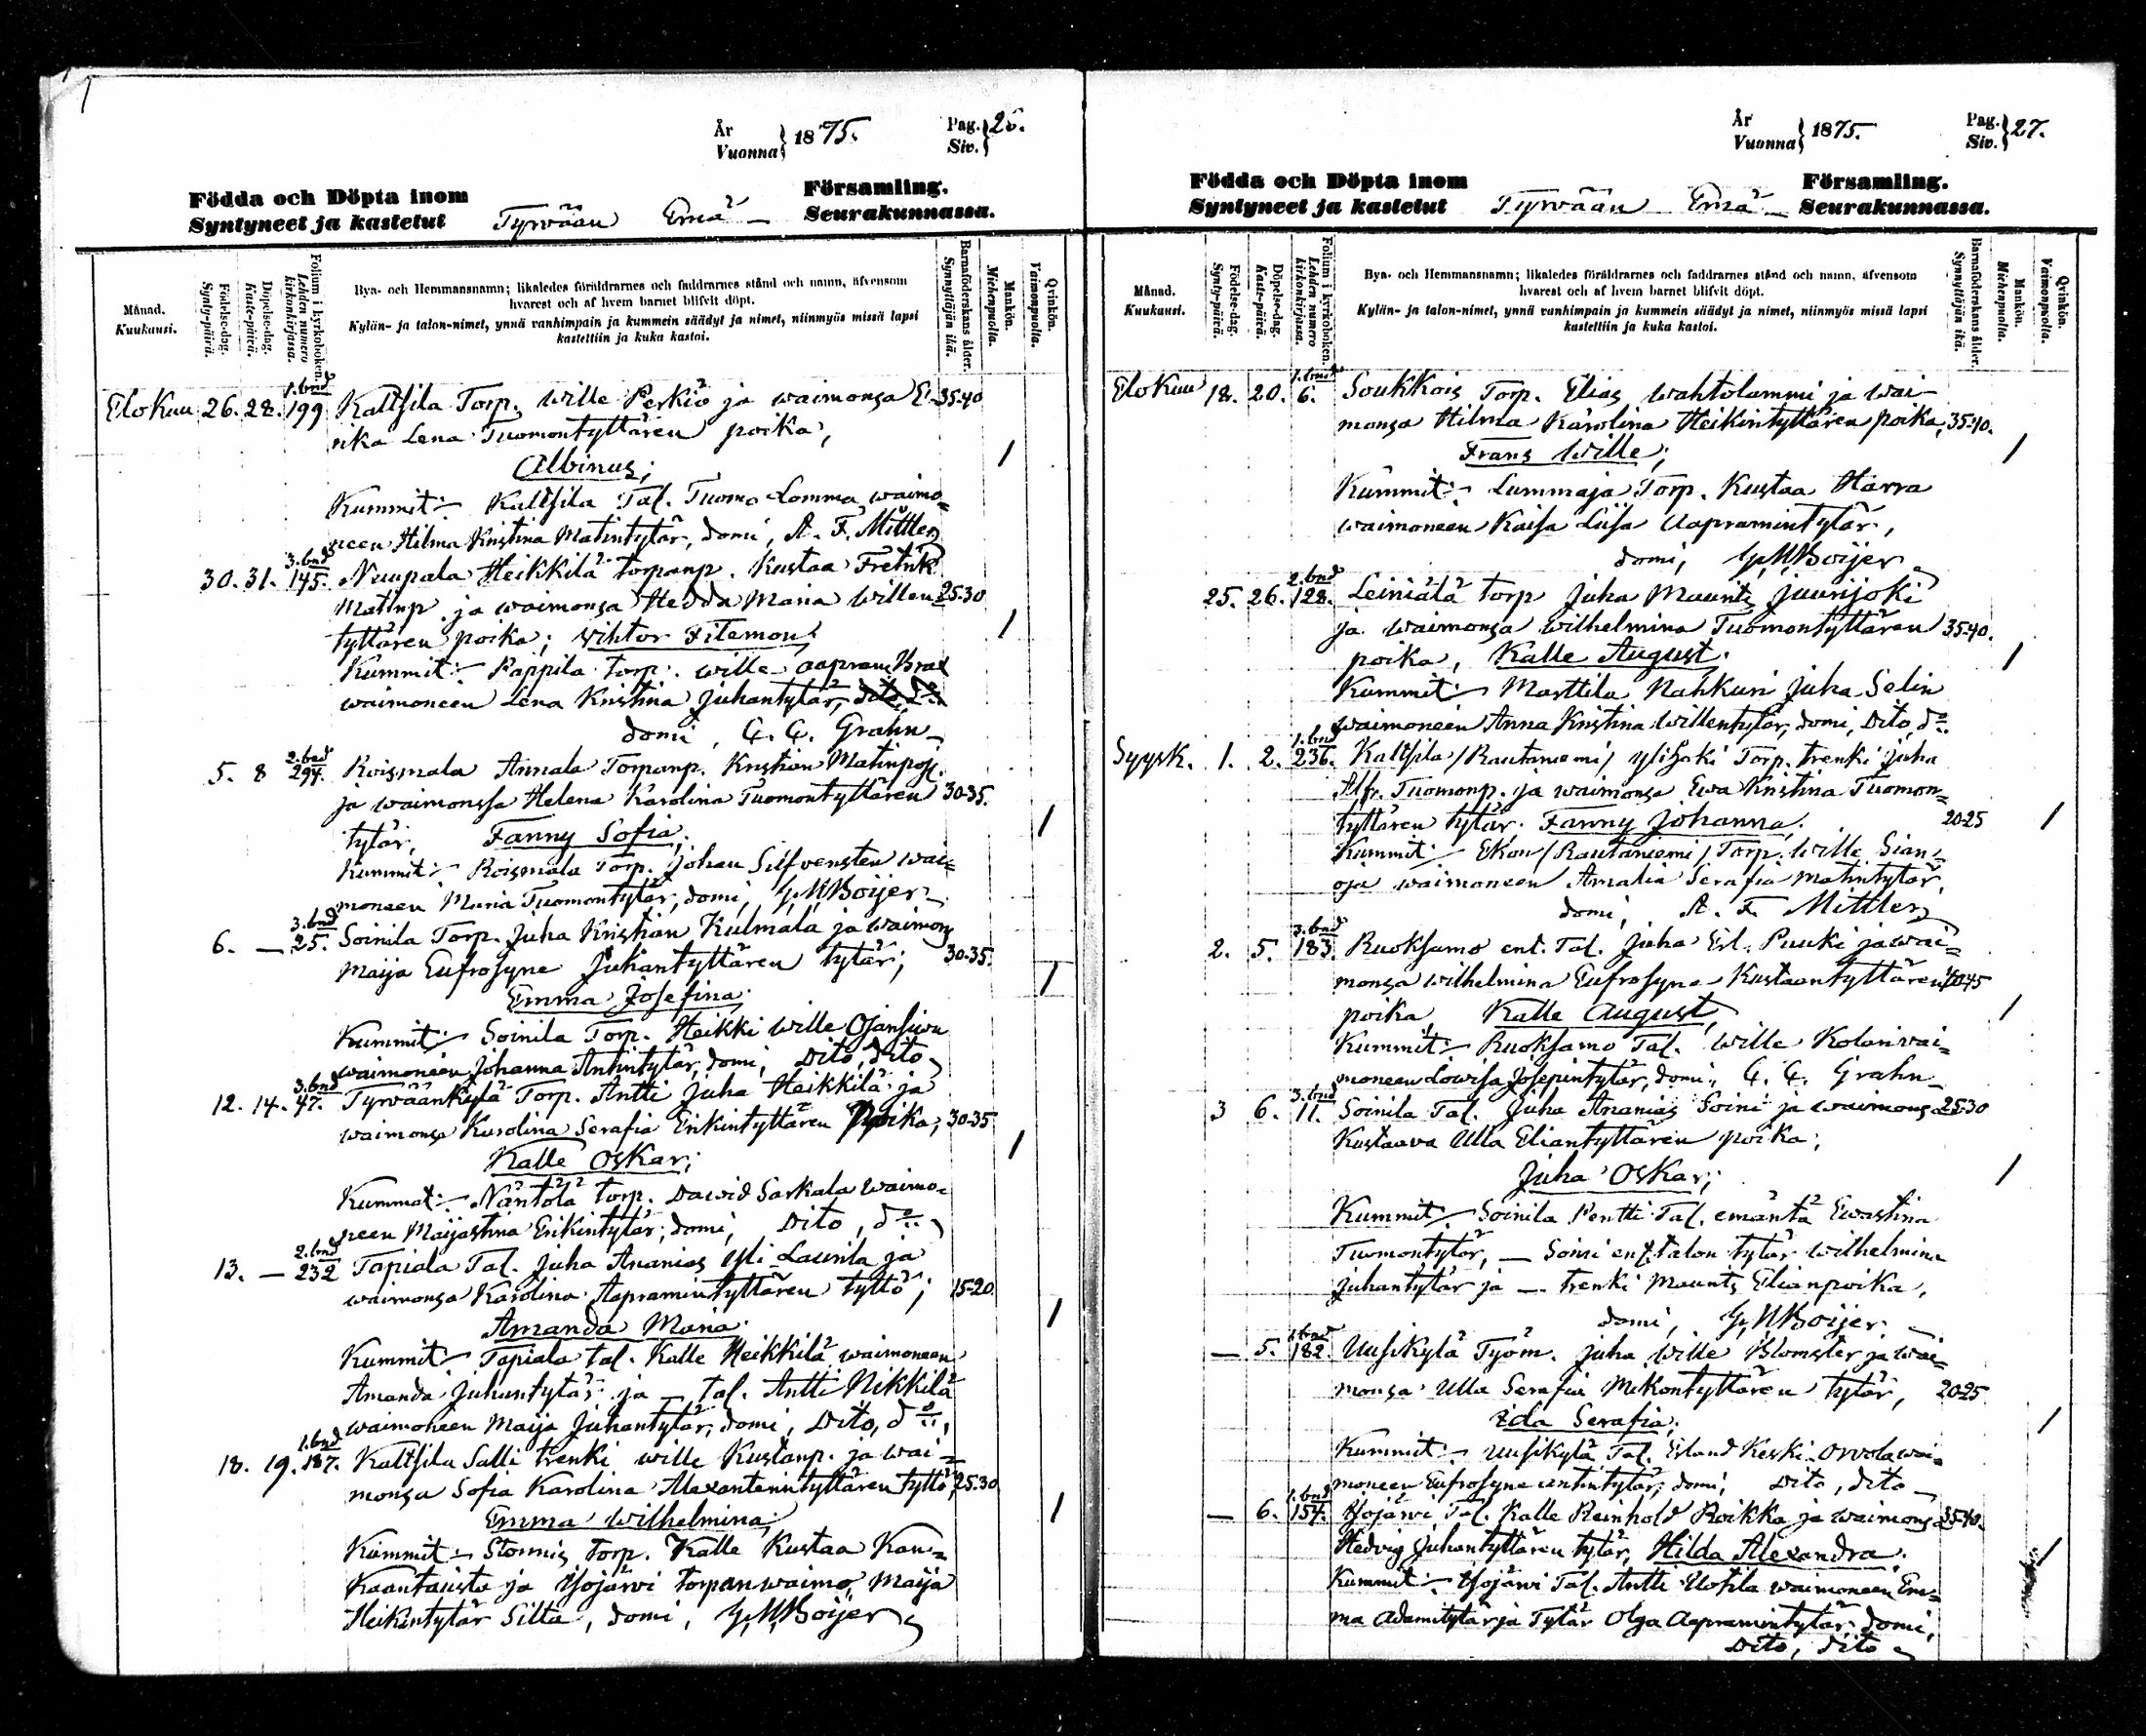 År
Vuonna } 1875.
Pag.
Siv. } 26.
Födda och Döpta inom
Syntyneet ja kastetut
Tyrvään Emä –
Församling.
Seurakunnassa.
Månad.
Kuukausi.
Födelse-dag.
Synty-päivä.
Döpelse-dag.
Kaste-päivä.
Folium i kyrkoboken.
Lehden numero kirkonkirjassa.
Bya- och Hemmansnamn; likaledes föräldrarnes och faddrarnes stånd och namn, äfvensom
hvarest och af hvem barnet blifvit döpt.
Kylän- ja talon-nimet, ynnä vanhimpain ja kummein säädyt ja nimet, niinmyös missä lapsi
kastettiin ja kuka kastoi.
Barnaföderskans ålder.
Synnyttäjän ikä.
Mankön.
Miehenpuolta.
Qvinkön.
Vaimonpuolta.
Elokuu 26. 28. 1. bnd 199 Kaltsila Torp. Wille Perkiö ja waimonsa E- 35-40
rika Lena Tuomontyttären poika,
Albinus; /
Kummit:- Kaltsila Tal. Tuomo Lomma waimo=
neen Hilma Kristina Matintytär, domi, A. F. Mittler
30. 31. 3. bnd 145. Nuupala Heikkilä torpanp. Kustaa Fretrik
Matinp. ja waimonsa Hedda Maria Willen= 25-30
tyttären poika; Wihtor Filemon. /
Kummit:- Pappila torp. Wille Aapram
waimoneen Lena Kristina Juhantytär,
domi, C. C. Grahn
5. 8 2. bnd 294. Roismala Annala Torpanp. Kristian Matinpoj.
ja waimonsa Helena Karolina Tuomontyttären 30-35.
tytär, Fanny Sofia; /
Kummit:- Roismala Torp. Johan Silfvensten wai=
moneen Maria Tuomontytär, domi, G. M Boijer
6. — 3. bnd 25. Soinila Torp. Juha Kristian Kulmala ja waimons
Maija Eufrosyne Juhantyttären tytär; 30-35.
Emma Josefina. /
Kummit:- Soinila Torp. Heikki Wille Ojansiwu
waimoneen Johanna Antintytär, domi, Dito, Dito
12. 14. 3. bnd 47. Tyrväänkylä Torp. Antti Juha Heikkilä ja
waimonsa Karolina Serafia Erikintyttären Poika; 30-35
Kalle Oskar; /
Kummat:- Näntölä torp. Dawid Sarkala waimo=
neen Maijastina Erikintytär; domi, Dito, d:o
13. — 2. bnd 232 Tapiala Tal. Juha Ananias Yli-Laurila ja
waimonsa Karolina Aapramintyttären tyttö; 15-20.
Amanda Maria. /
Kummit:- Tapiala tal. Kalle Heikkilä waimoneen
Amanda Juhantytär ja — tal. Antti Nikkilä
waimoneen Maija Juhantytär, domi, Dito, d:o
18. 19. 1. bnd 187. Kaltsila Salli trenki Wille Kustaanp. ja wai=
monsa Sofia Karolina Alexanterintyttären tyttö; 25-30
Emma Wilhelmina; /
Kummit:- Stormis torp. Kalle Kustaa Kan=
kaantausta ja Yojärvi torpanwaimo Maija
Heikintytär Silta, domi, G. M Boijer
År
Vuonna } 1875.
Pag.
Siv. } 27.
Födda och Döpta inom
Syntyneet ja kastetut
Tyrvään Emä –
Församling.
Seurakunnassa.
Månad.
Kuukausi.
Födelse-dag.
Synty-päivä.
Döpelse-dag.
Kaste-päivä.
Folium i kyrkoboken.
Lehden numero kirkonkirjassa.
Bya- och Hemmansnamn; likaledes föräldrarnes och faddrarnes stånd och namn, äfvensom
hvarest och af hvem barnet blifvit döpt.
Kylän- ja talon-nimet, ynnä vanhimpain ja kummein säädyt ja nimet, niinmyös missä lapsi
kastettiin ja kuka kastoi.
Barnaföderskans ålder.
Synnyttäjän ikä.
Mankön.
Miehenpuolta.
Qvinkön.
Vaimonpuolta.
Elokuu 18. 20. 1. bnd 6. Soukkois Torp. Elias Wahtolammi ja wai-
monsa Hilma Karolina Heikintyttären poika, 35-40.
Frans Wille; /
Kummit:- Lummaja Torp. Kustaa Harra
waimoneen Kaisa Liisa Aapramintytär,
domi, G. M Boijer
25. 26. 2. bnd 128. Leiniälä torp Juha Maurits Juurijoki
ja waimonsa Wilhelmina Tuomontyttären 35-40.
poika, Kalle August. /
Kummit:- Marttila Nahkuri Juha Selin
waimoneen Anna Kristina Willentytär, domi, Dito, d:o
Syysk. 1. 2. 1. bnd 236. Kaltsila /Rautaniemi/ Ylitjoki Torp. trenki Juha
Alfr. Tuomonp. ja waimonsa Ewa Kristina Tuomon=
tyttären tytär. Fanny Johanna. 20-25 /
Kummit:- Ekon /Rautaniemi/ Torp. Wille Sian=
oja waimoneen Amalia Serafia Matintytär,
domi, A. F. Mittler
2. 5. 3. bnd 183. Ruoksamo ent. Tal. Juha Erl. Puuki ja wai=
monsa Wilhelmina Eufrosyne Kustaantyttären 40-45
poika Kalle August, /
Kummit:- Ruoksamo Tal. Wille Kolari wai=
moneen Lowisa Josepintytär, domi, C. C. Grahn
3 6. 3. bnd 11. Soinila Tal. Juha Ananias Soini ja waimonsa 25-30
Kustaava Ulla Eliantyttären poika;
Juha Oskar; /
Kummit:- Soinila Pentti Tal. emäntä Ewastina
Tuomontytär, — Soini ent. talon tytär Wilhelmina
Juhantytär ja — trenki Maurits Elianpoika,
domi, G. M Boijer.
— 5. 1. bnd 182. Uusikylä Työm. Juha Wille Blomster ja wai=
monsa Ulla Serafia Mikontyttären tytär, 20-25
Ida Serafia; /
Kummit:- Uusikylä Tal. Erland Keski-Orvola wai=
moneen Eufrosyne Antintytär, domi, Dito, Dito
— 6. 1. bnd 154. Yojärvi Tal. Kalle Reinhold Roikka ja waimonsa 35-40.
Hedvig Juhantyttären tytär, Hilda Alexandra. /
Kummit:- Yojärvi Tal. Antti Uotila waimoneen Em=
ma Adamitytär ja Tytär Olga Aapramintytär, domi,
Dito, Dito